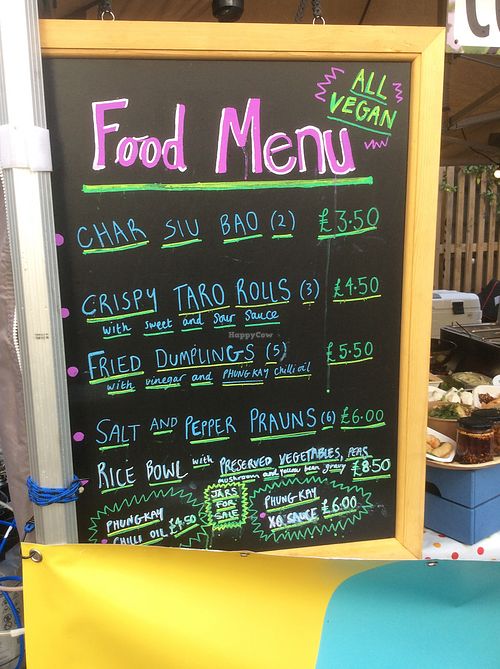 ALL
VEGAN
Food Menu
CHAR SIU BAO (2) £3.50
CRISPY TARO ROLLS (3) £4.50
with sweet and sour sauce
HappyCow
FRIED DUMPLINGS (5) £5.50
with vinegar and PHUNG KAY chilli oil
SALT AND PEPPER PRAUNS (6) £6.00
RICE BOWL with PRESERVED VEGETABLES, PEAS
mushroom and yellow bean gravy £8.50
PHUNG KAY
CHILLI OIL £4.50
JARS
FOR
SALE
PHUNG KAY
XO SAUCE £6.00